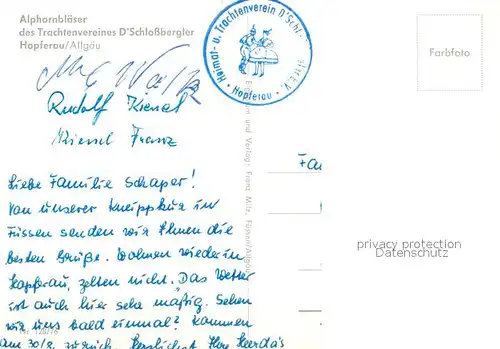 Alphornbläser
des Trachtenvereines D'Schloßbergler
Hopferau/Allgäu
Heimat- u. Trachtenverein D'Schl
Hopferau
e.V.
Farbfoto
Rudolf Kienel
Kienel Franz
und Verlag: Franz Milz, Füssen/Allgäu
Liebe Familie Schaper!
Von unserer Kneippkur in
Füssen senden wir Ihnen die
besten Grüße. Wohnen wieder in
Hopferau, zelten nicht. Das Wetter
ist auch hier sehr mäßig. Sehen
wir uns bald einmal? Kommen
am 30/8. zurück. Herzlichst Ihre
Fam
privacy protection
Datenschutz